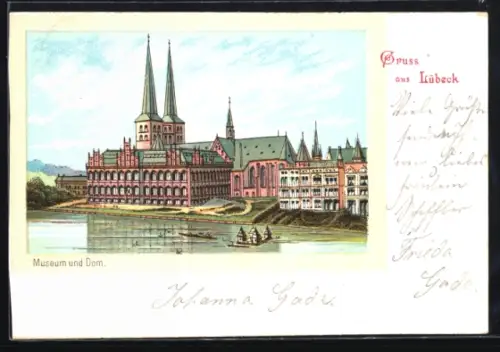 Gruss
aus Lübeck
Viele Grüße
sendet
Frieda
Gade.
Museum und Dom.
Johanna Gade.